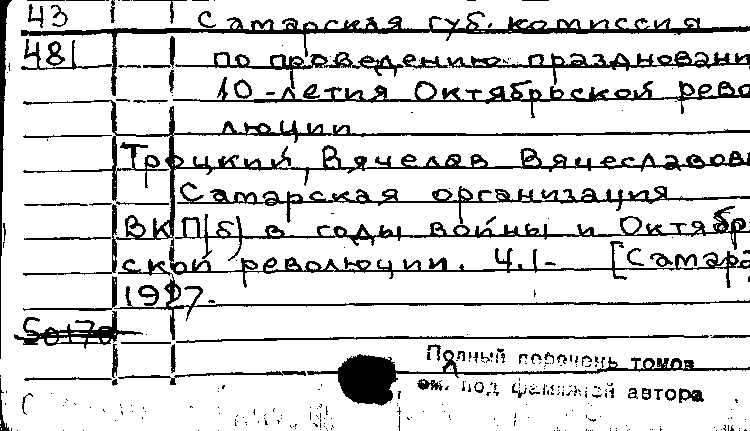 43 Самарская губ. комиссия
481 по проведению праздновани
10-летия Октябрьской рево
люции.
Троцкий, Вячелав Вячеславов
Самарская организация
ВКП(б) в годы войны и Октябр
ской революции. Ч.1- [Самара
1927.
50170
Полный перечень томов
см. под фамилией автора